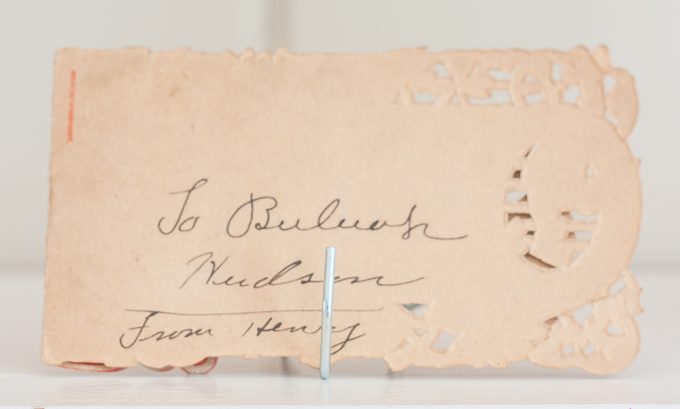 To Beluah
Hudson
From Henry